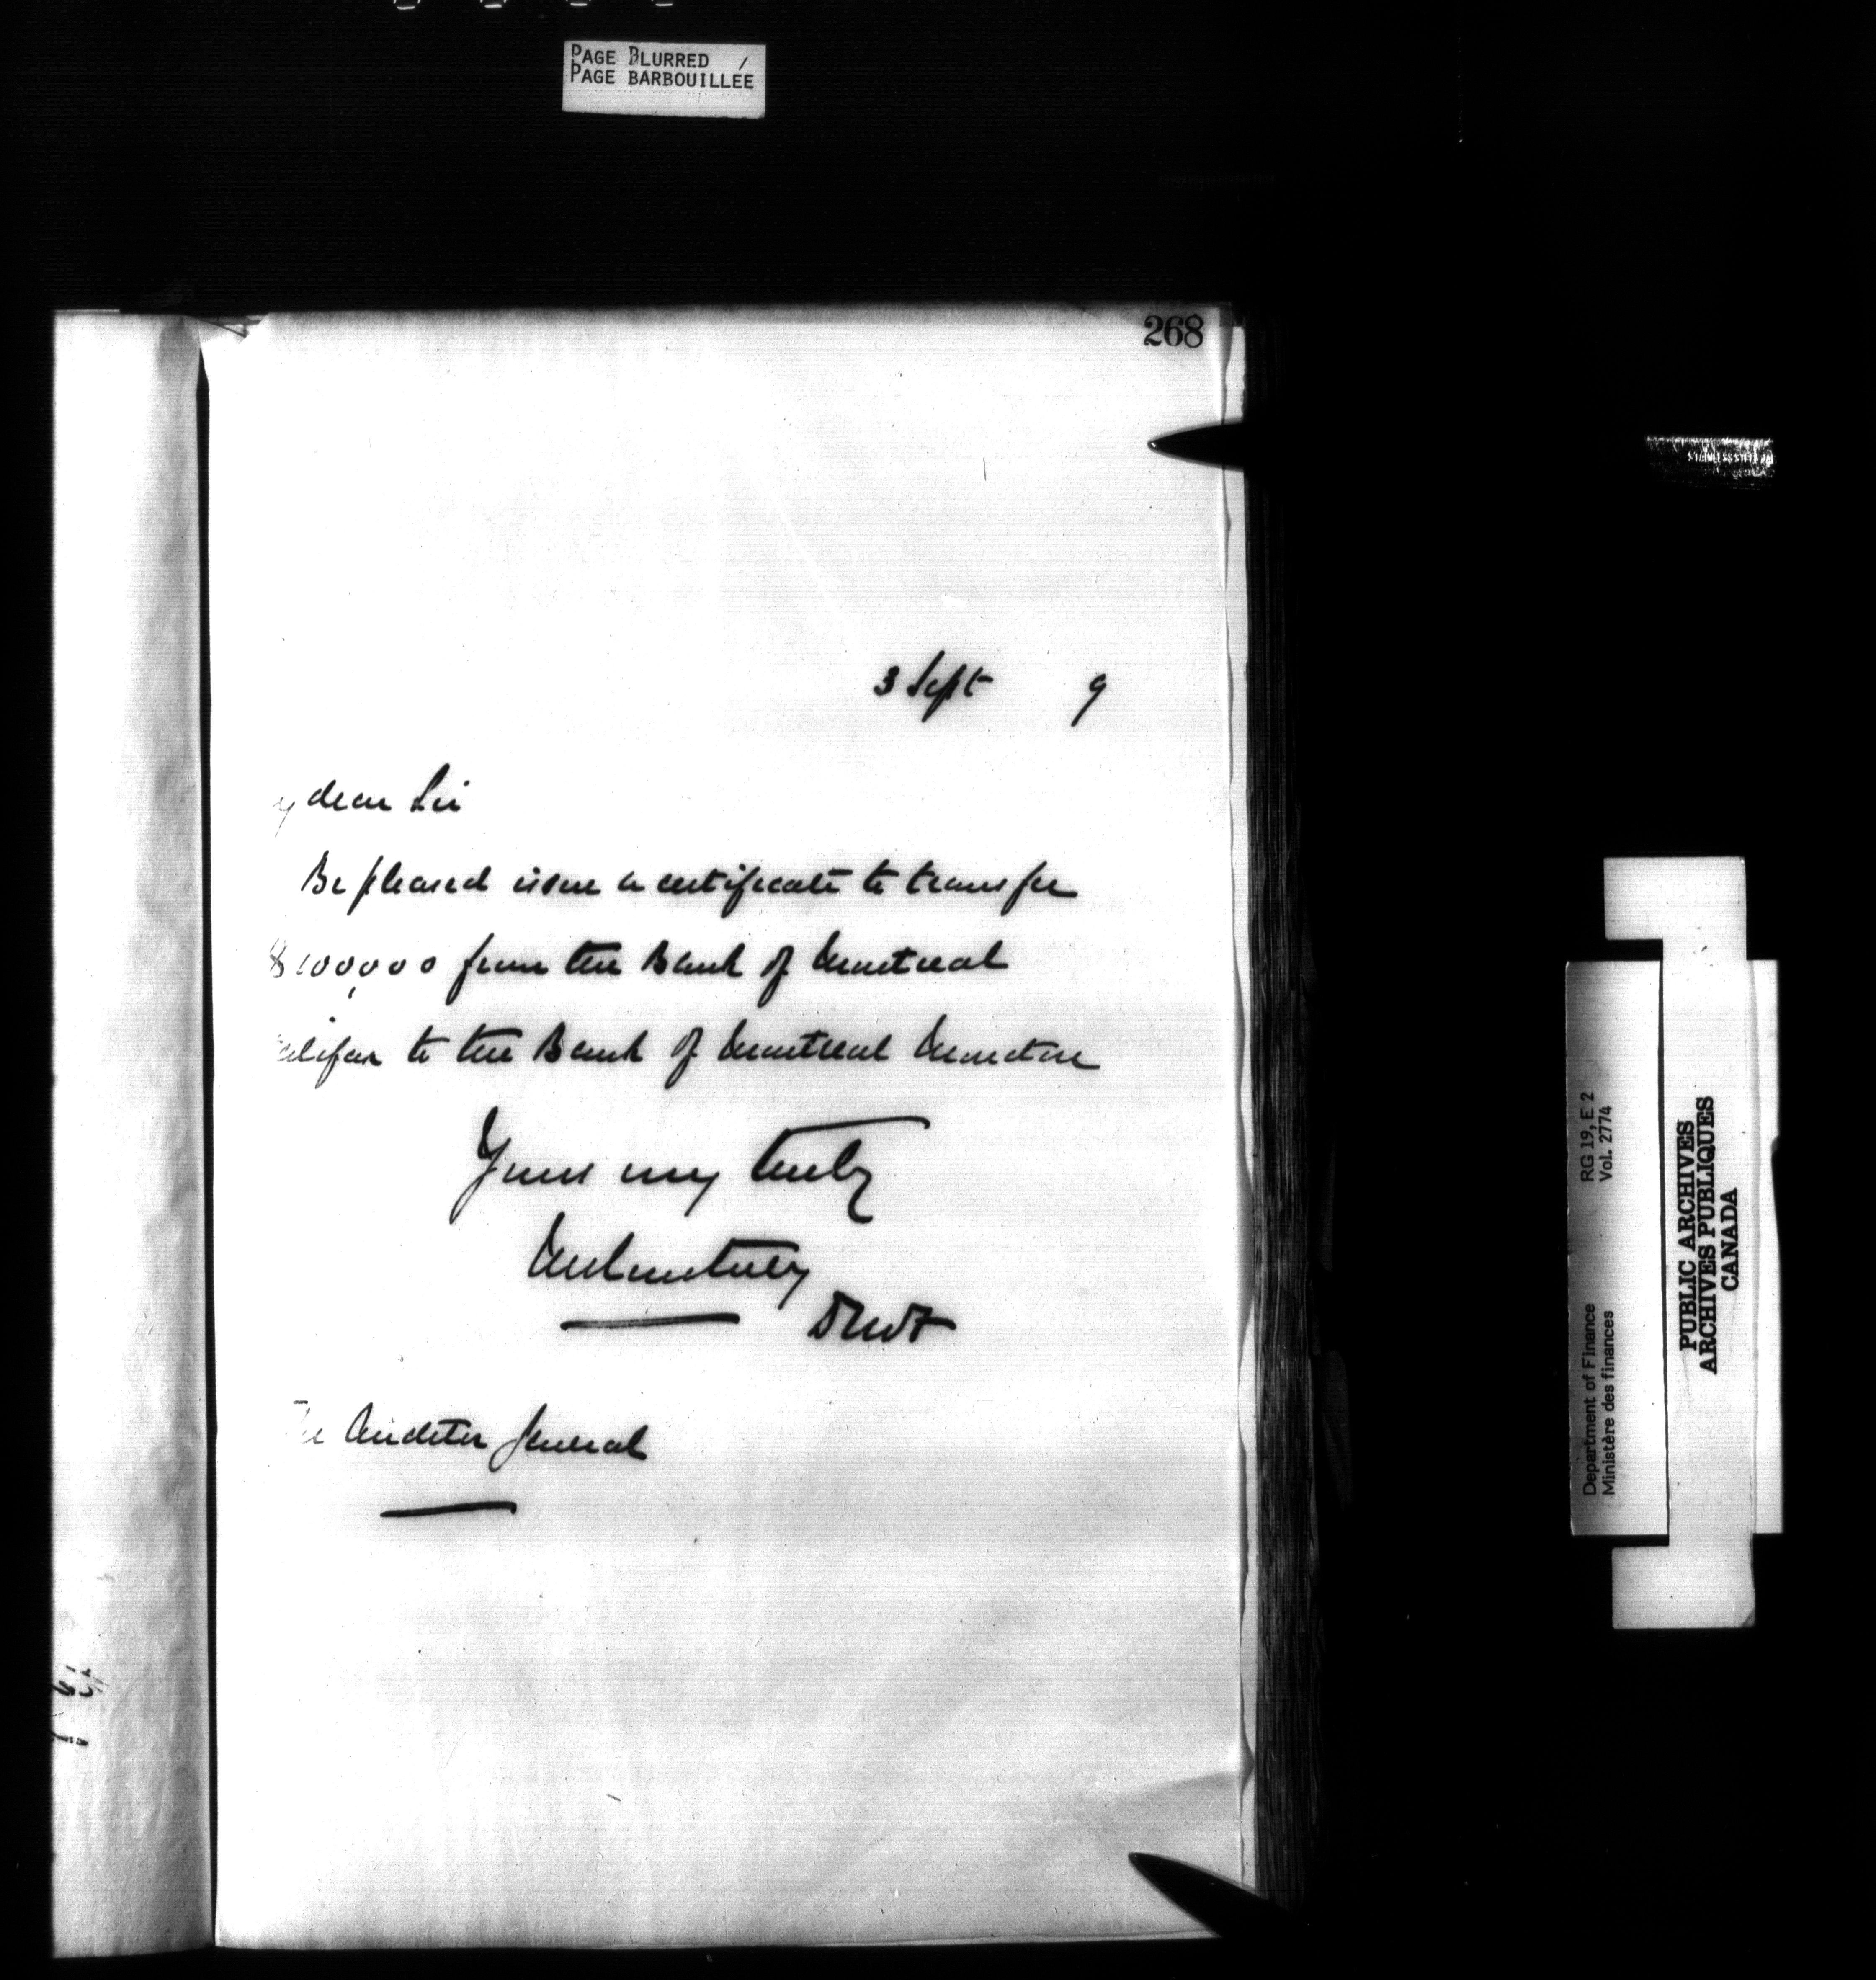 PAGE BLURRED /
PAGE BARBOUILLEE
268
3 Sept 9
y dear Sir
Be pleased issue a certificate to transfer
$100,000 from the Bank of Montreal
alifax to the Bank of Montreal Moncton
Yours very truly
DMF
The Auditor General
Department of Finance RG 19, E 2
Ministère des finances Vol. 2774
PUBLIC ARCHIVES
ARCHIVES PUBLIQUES
CANADA